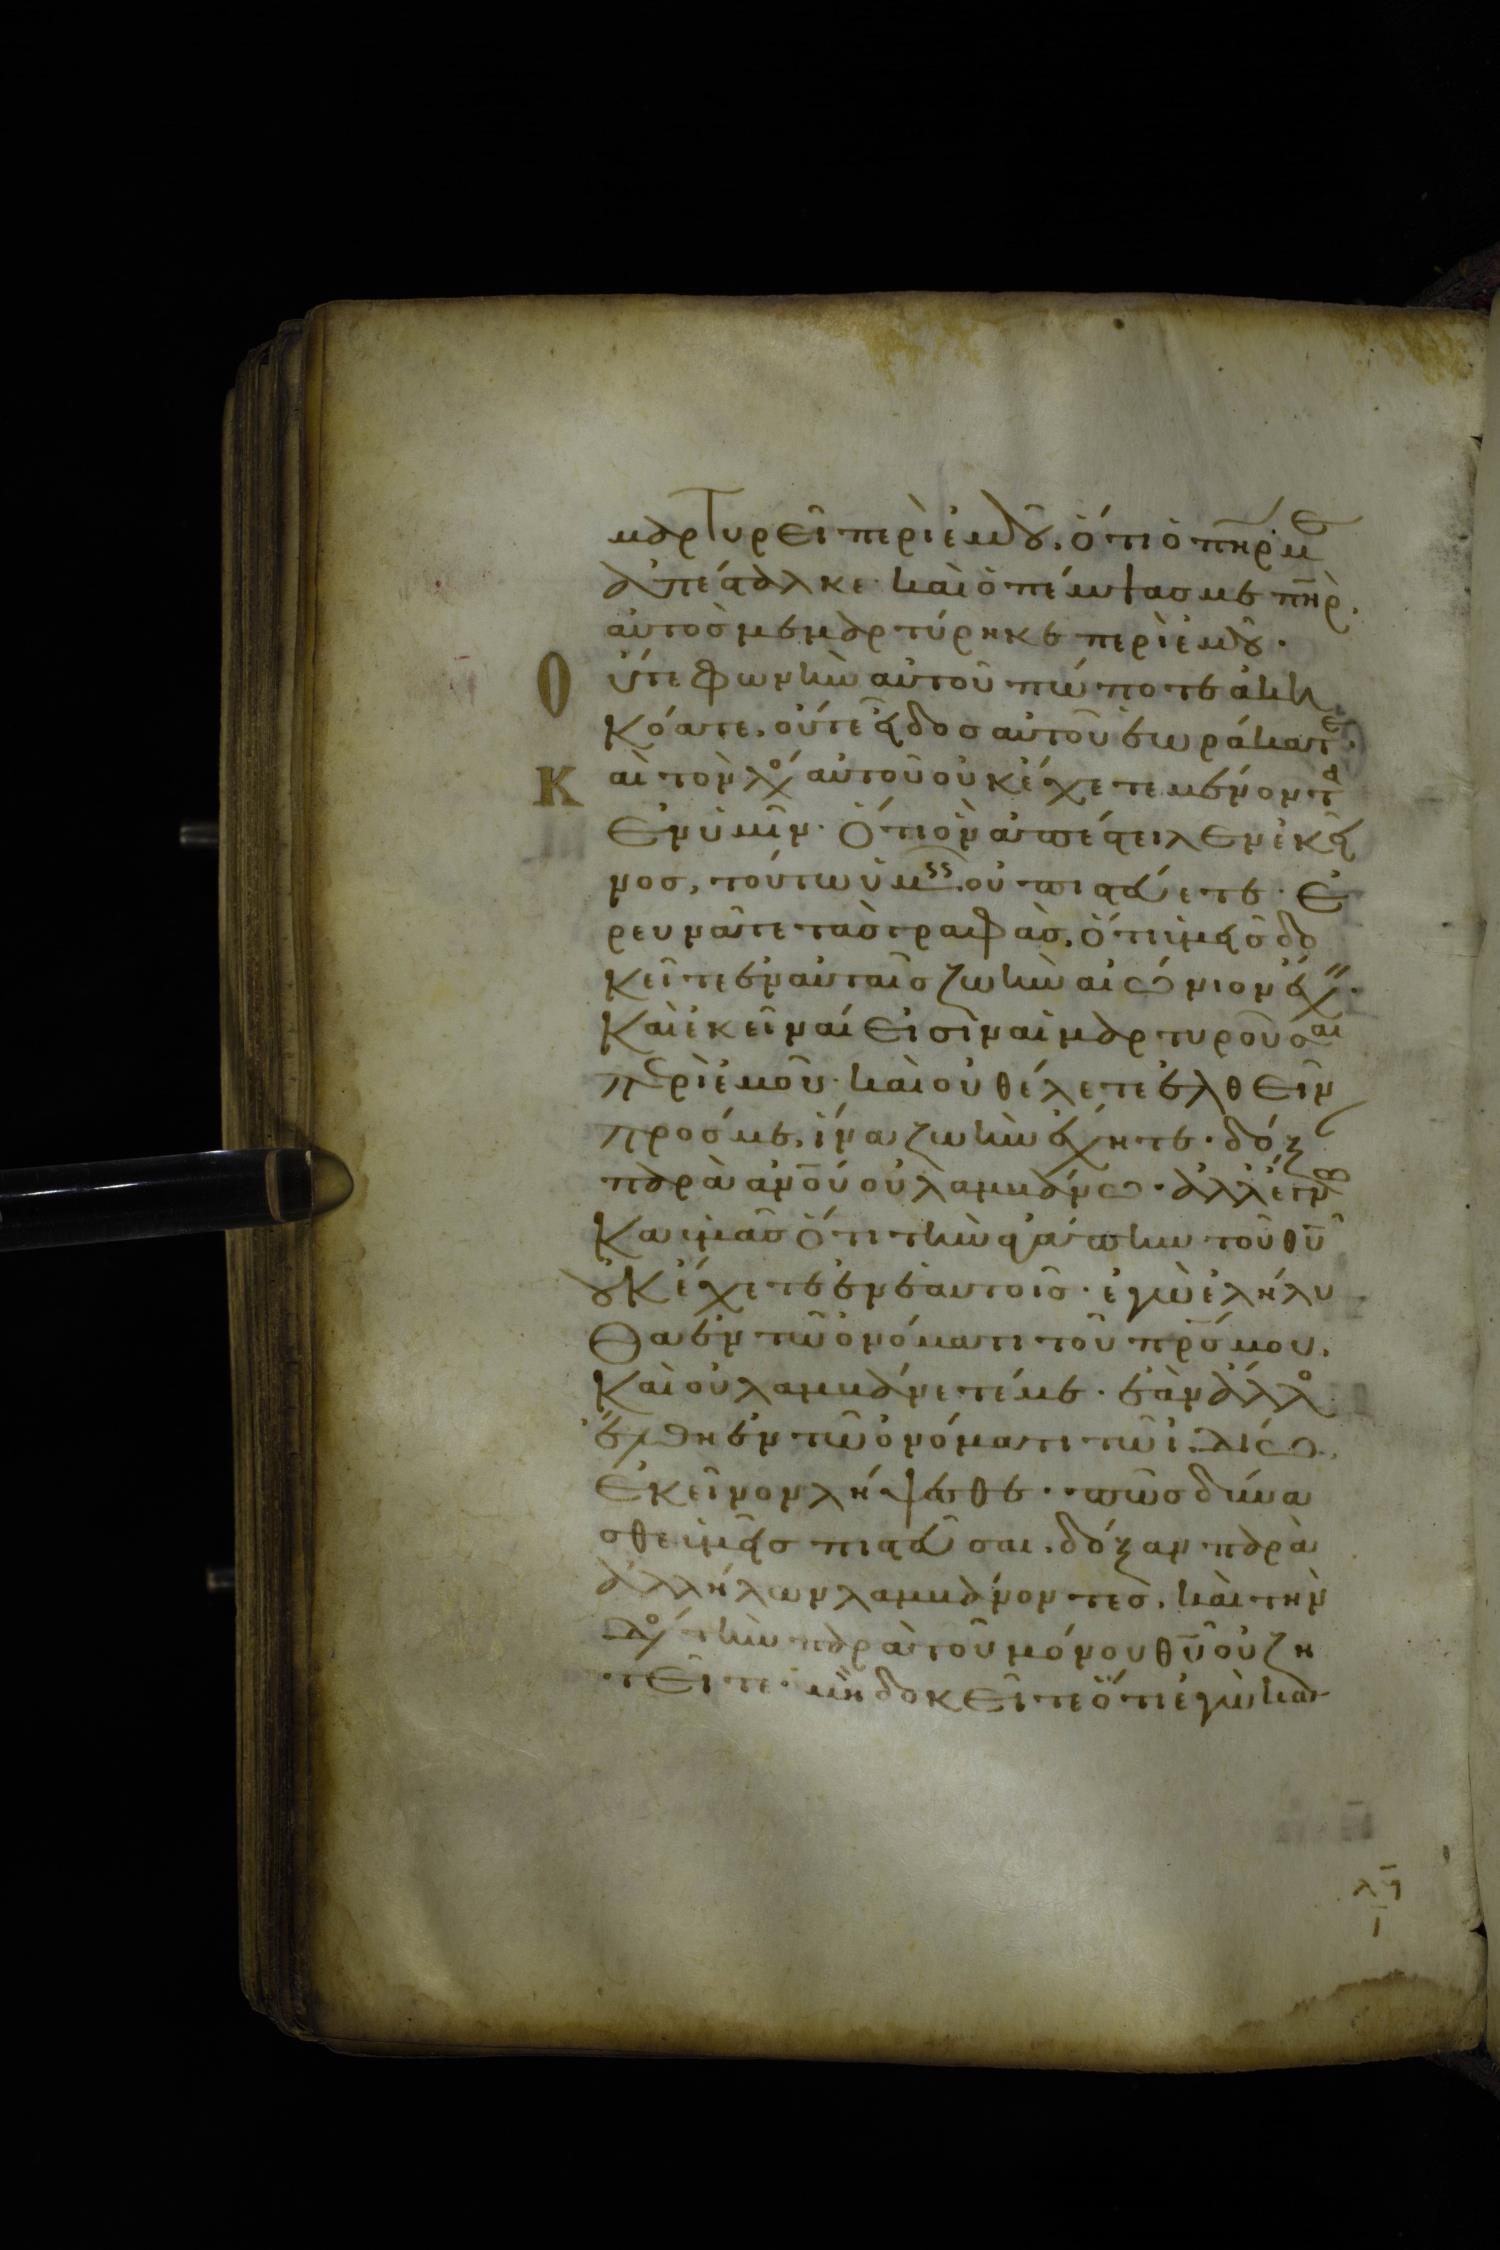 μαρτυρεῖ περὶ ἐμοῦ, ὅτι ὁ πηρ με
ἀπέσταλκε· καὶ ὁ πέμψας με πηρ,
αὐτὸς μεμαρτύρηκε περὶ ἐμοῦ·
Οὔτε φωνὴν αὐτοῦ πώποτε ἀκη
κόατε, οὔτε εἶδος αὐτοῦ ἑωράκατε·
Καὶ τὸν λόγ αὐτοῦ οὐκ ἔχετε μένοντα
ἐν ὑμῖν· ὅτι ὃν ἀπέστειλεν ἐκεῖ
νος, τούτω ὑμεῖς οὐ πιστεύετε· ἐ
ρευνᾶτε τὰς γραφάς, ὅτι ὑμεῖς δο
κεῖτε ἐν αὐταῖς ζωὴν αἰώνιον ἔχ·
Καὶ ἐκεῖναί εἰσιν αἱ μαρτυροῦσαι
περὶ ἐμοῦ· καὶ οὐ θέλετε ἐλθεῖν
πρός με, ἵνα ζωὴν ἔχητε· δόξ
παρὰ ανου οὐ λαμβάνω· ἀλλ' ἔγν
κα ὑμᾶς ὅτι τὴν ἀγάπην τοῦ θυ
οὐκ ἔχετε ἐν ἑαυτοῖς· ἐγὼ ἐλήλυ
θα ἐν τῶ ὀνόματι τοῦ πρς μου,
Καὶ οὐ λαμβάνετέ με· ἐὰν ἄλλος
ἔλθη ἐν τῶ ὀνόματι τῶ ἰδίω,
ἐκεῖνον λήψεσθε· πῶς δύνα
σθε ὑμεῖς πιστεῦσαι, δόξαν παρὰ
ἀλλήλων λαμβάνοντες, καὶ τὴν
δόξ τὴν παρὰ τοῦ μόνου θυ οὐ ζη
τεῖτε· μὴ δοκεῖτε ὅτι ἐγὼ κατ